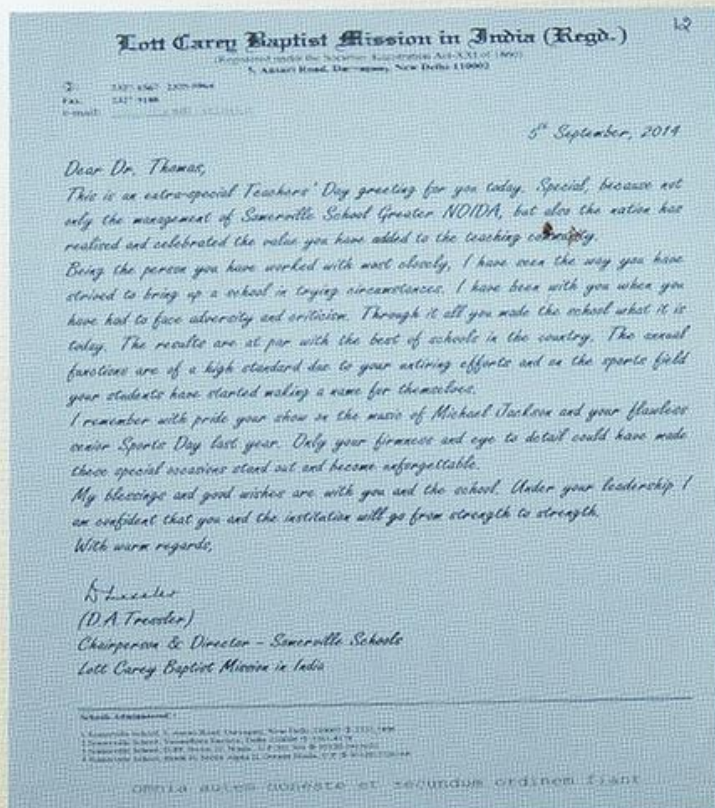 12
Lott Carey Baptist Mission in India (Regd.)
(Registered under the Societies Registration Act-XXI of 1860)
5, Ansari Road, Daryaganj, New Delhi 110002
Fax:
e-mail:
5th September, 2014
Dear Dr. Thomas,
This is an extra-special Teachers' Day greeting for you today. Special, because not
only the management of Somerville School Greater NOIDA, but also the nation has
realised and celebrated the value you have added to the teaching community.
Being the person you have worked with most closely, I have seen the way you have
strived to bring up a school in trying circumstances. I have been with you when you
have had to face adversity and criticism. Through it all you made the school what it is
today. The results are at par with the best of schools in the country. The annual
functions are of a high standard due to your untiring efforts and on the sports field
your students have started making a name for themselves.
I remember with pride your show on the music of Michael Jackson and your flawless
senior Sports Day last year. Only your firmness and eye to detail could have made
these special occasions stand out and become unforgettable.
My blessings and good wishes are with you and the school. Under your leadership I
am confident that you and the institution will go from strength to strength.
With warm regards,
(D.A.Tressler)
Chairperson & Director - Somerville Schools
Lott Carey Baptist Mission in India
Schools Administered :
omnia autem honeste et secundum ordinem fiant